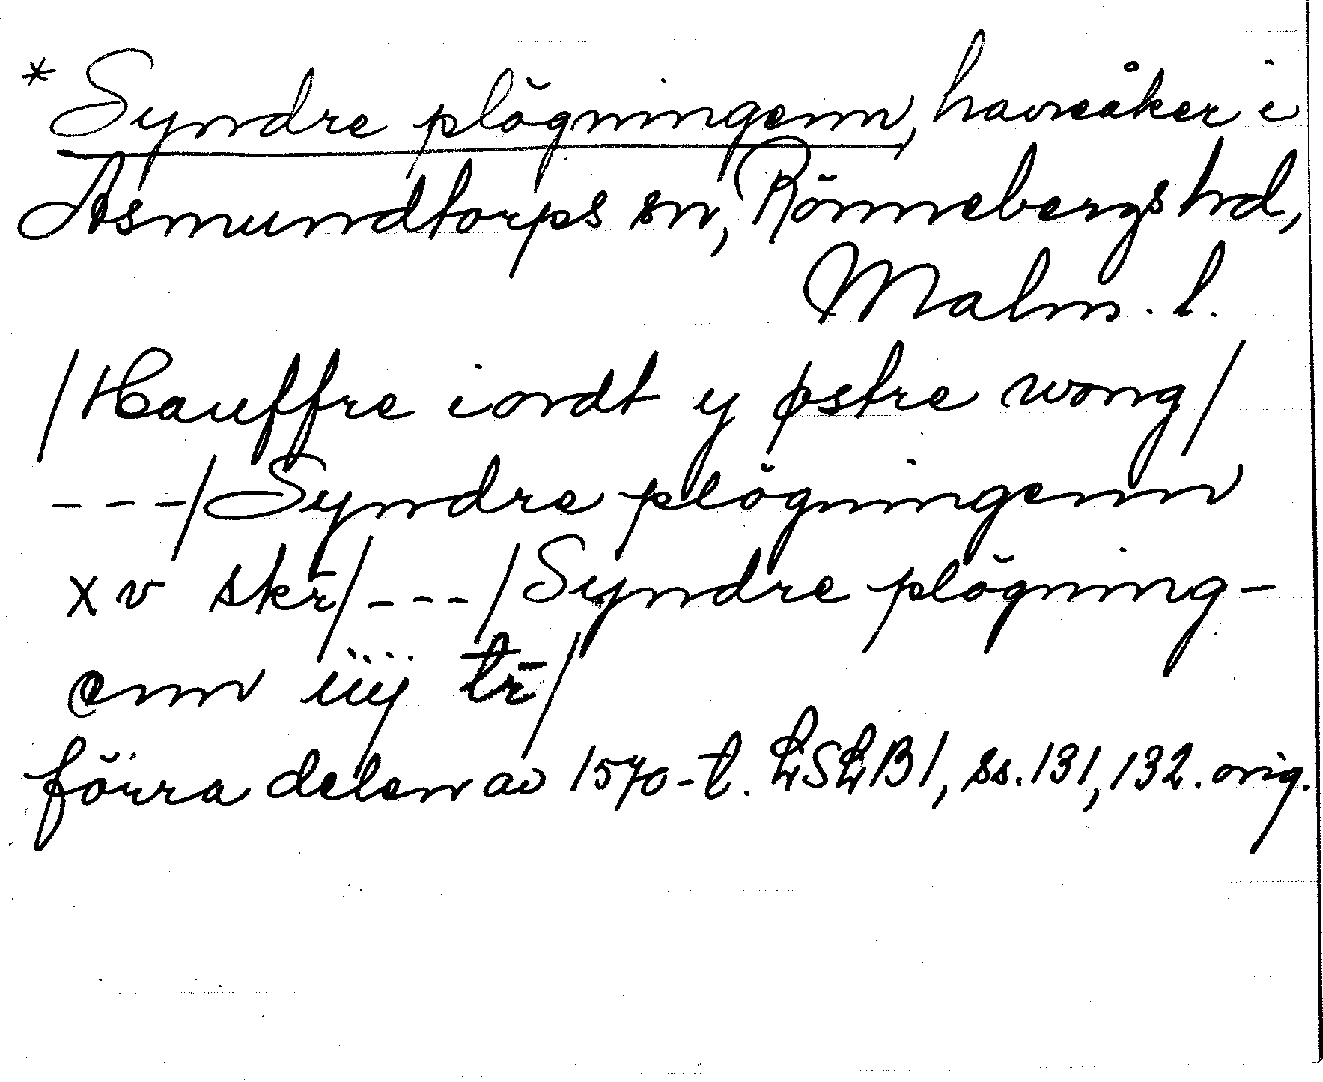 * Syndre plögningenn, havreåker i
Asmundtorps sn, Rönnebergs hd,
Malm. l.
/Hauffre iordt y østre wong/
---/Syndre plögningenn
x v skr̄/---/Syndre plögning-
enn iiij tr̄/
förra delen av 1570-t. LSLB1, ss. 131, 132. orig.